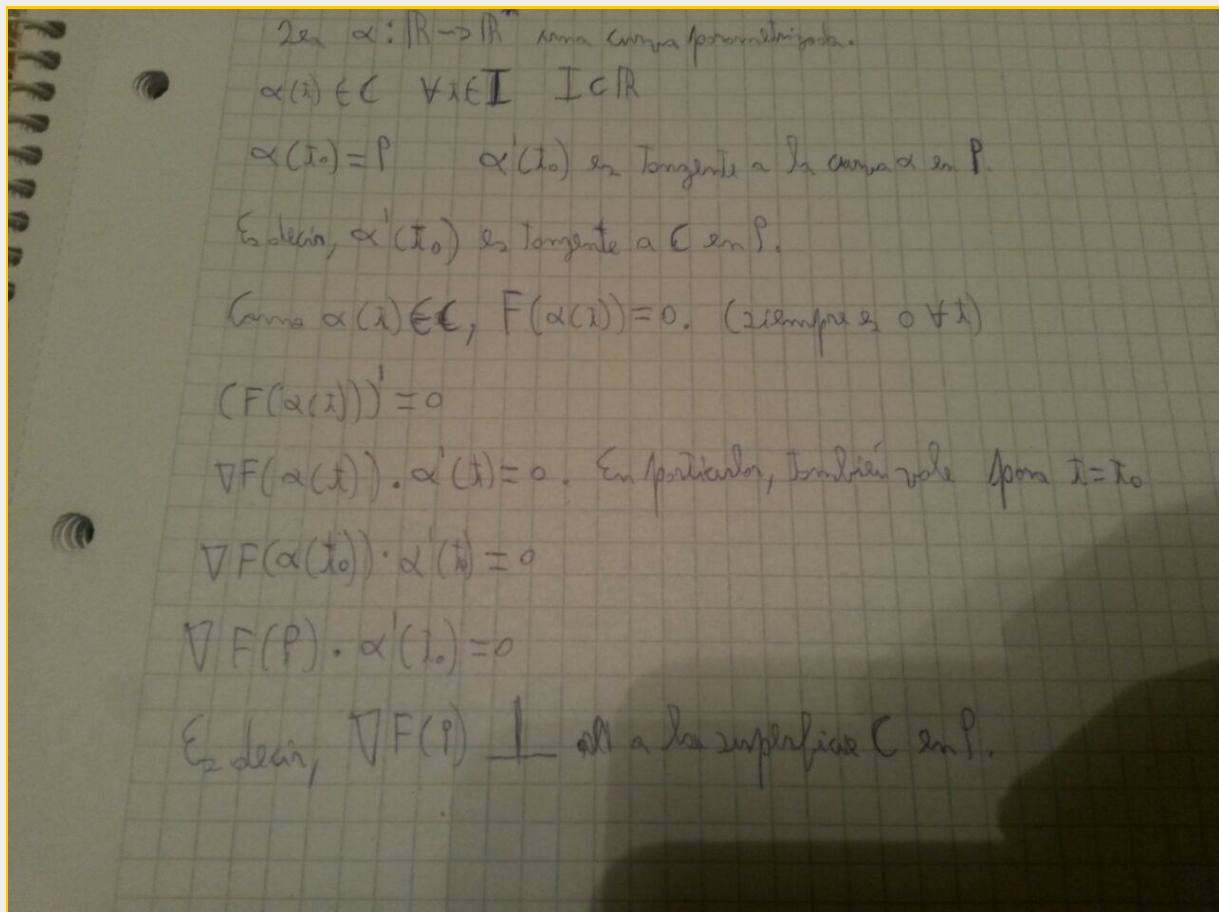 Sea α: ℝ→ℝⁿ una curva parametrizada.
α(t) ∈ C ∀t∈I I⊂ℝ
α(t₀)=P α'(t₀) es tangente a la curva α en P.
Es decir, α'(t₀) es tangente a C en P.
Como α(t) ∈ C, F(α(t))=0. (siempre es 0 ∀t)
(F(α(t)))'=0
∇F(α(t)).α'(t)=0. En particular, también vale para t=t₀
∇F(α(t₀))·α'(t₀)=0
∇F(P).α'(t₀)=0
Es decir, ∇F(P) ⊥ a la superficie C en P.